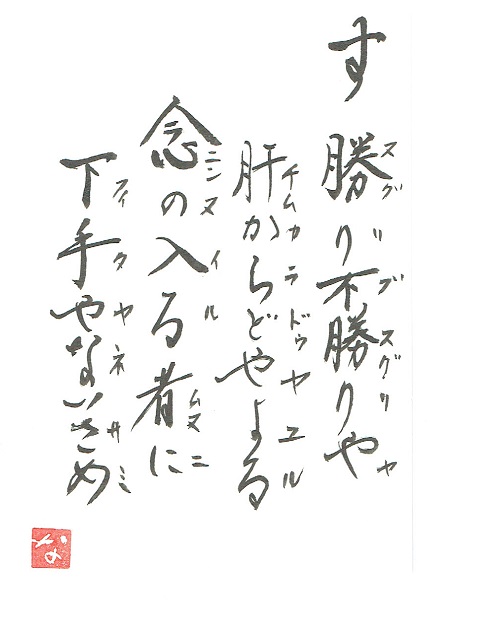 す
勝り不勝りや
スグリブスグリヤ
肝からどやよる
チムカラドゥヤユル
念の入る者に
ニンヌイルムヌニ
下手やないさめ
フィタヤネサミ
な